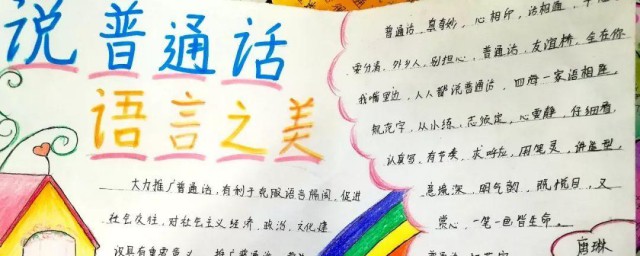 说普通话
语言之美
大力推广普通话,有利于克服语言隔阂,促进
社会交往,对社会主义经济、政治、文化建
设具有重要意义 推广普通话
普通话,真奇妙,心相印,话相通
要分清,外乡人,别担心,普通话,友谊桥,坐在你
我嘴里边,人人都说普通话,四海一家语相连。
规范字,从小练,志依定,心要静,仔细看,
认真写,有节奏,求呼应,用笔灵,讲造型,
意境深,明气韵,既悦目,又
赏心,一笔一画皆生命。
唐琳